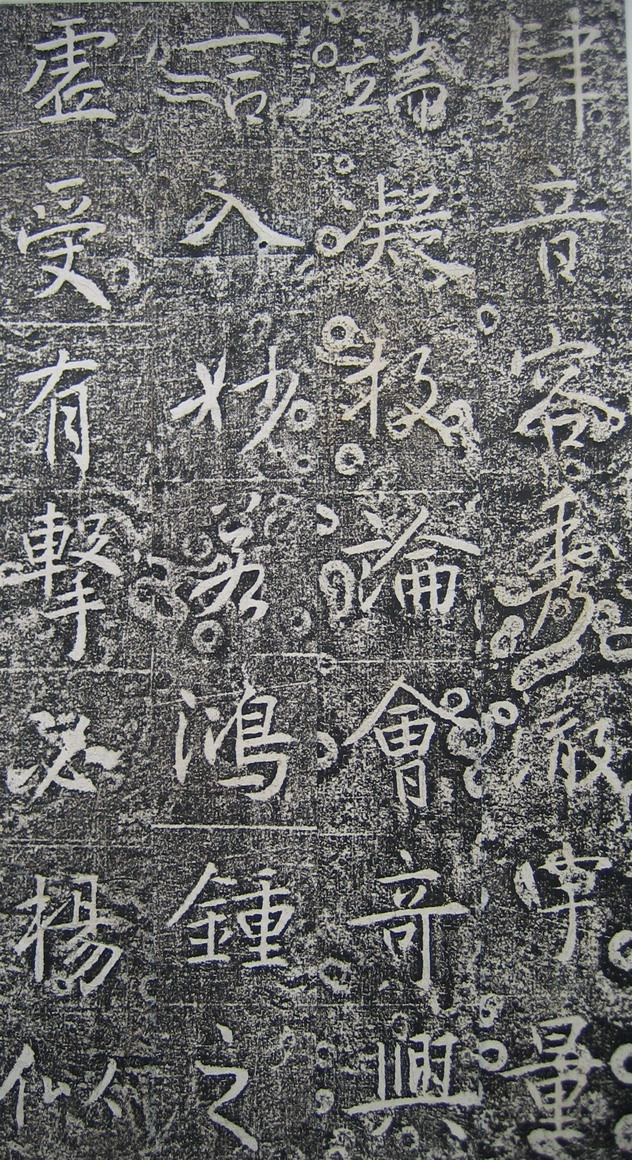 肆音容秀澈宇量
端凝極論會奇興
言入妙若鴻鍾之
虛受有擊必楊似